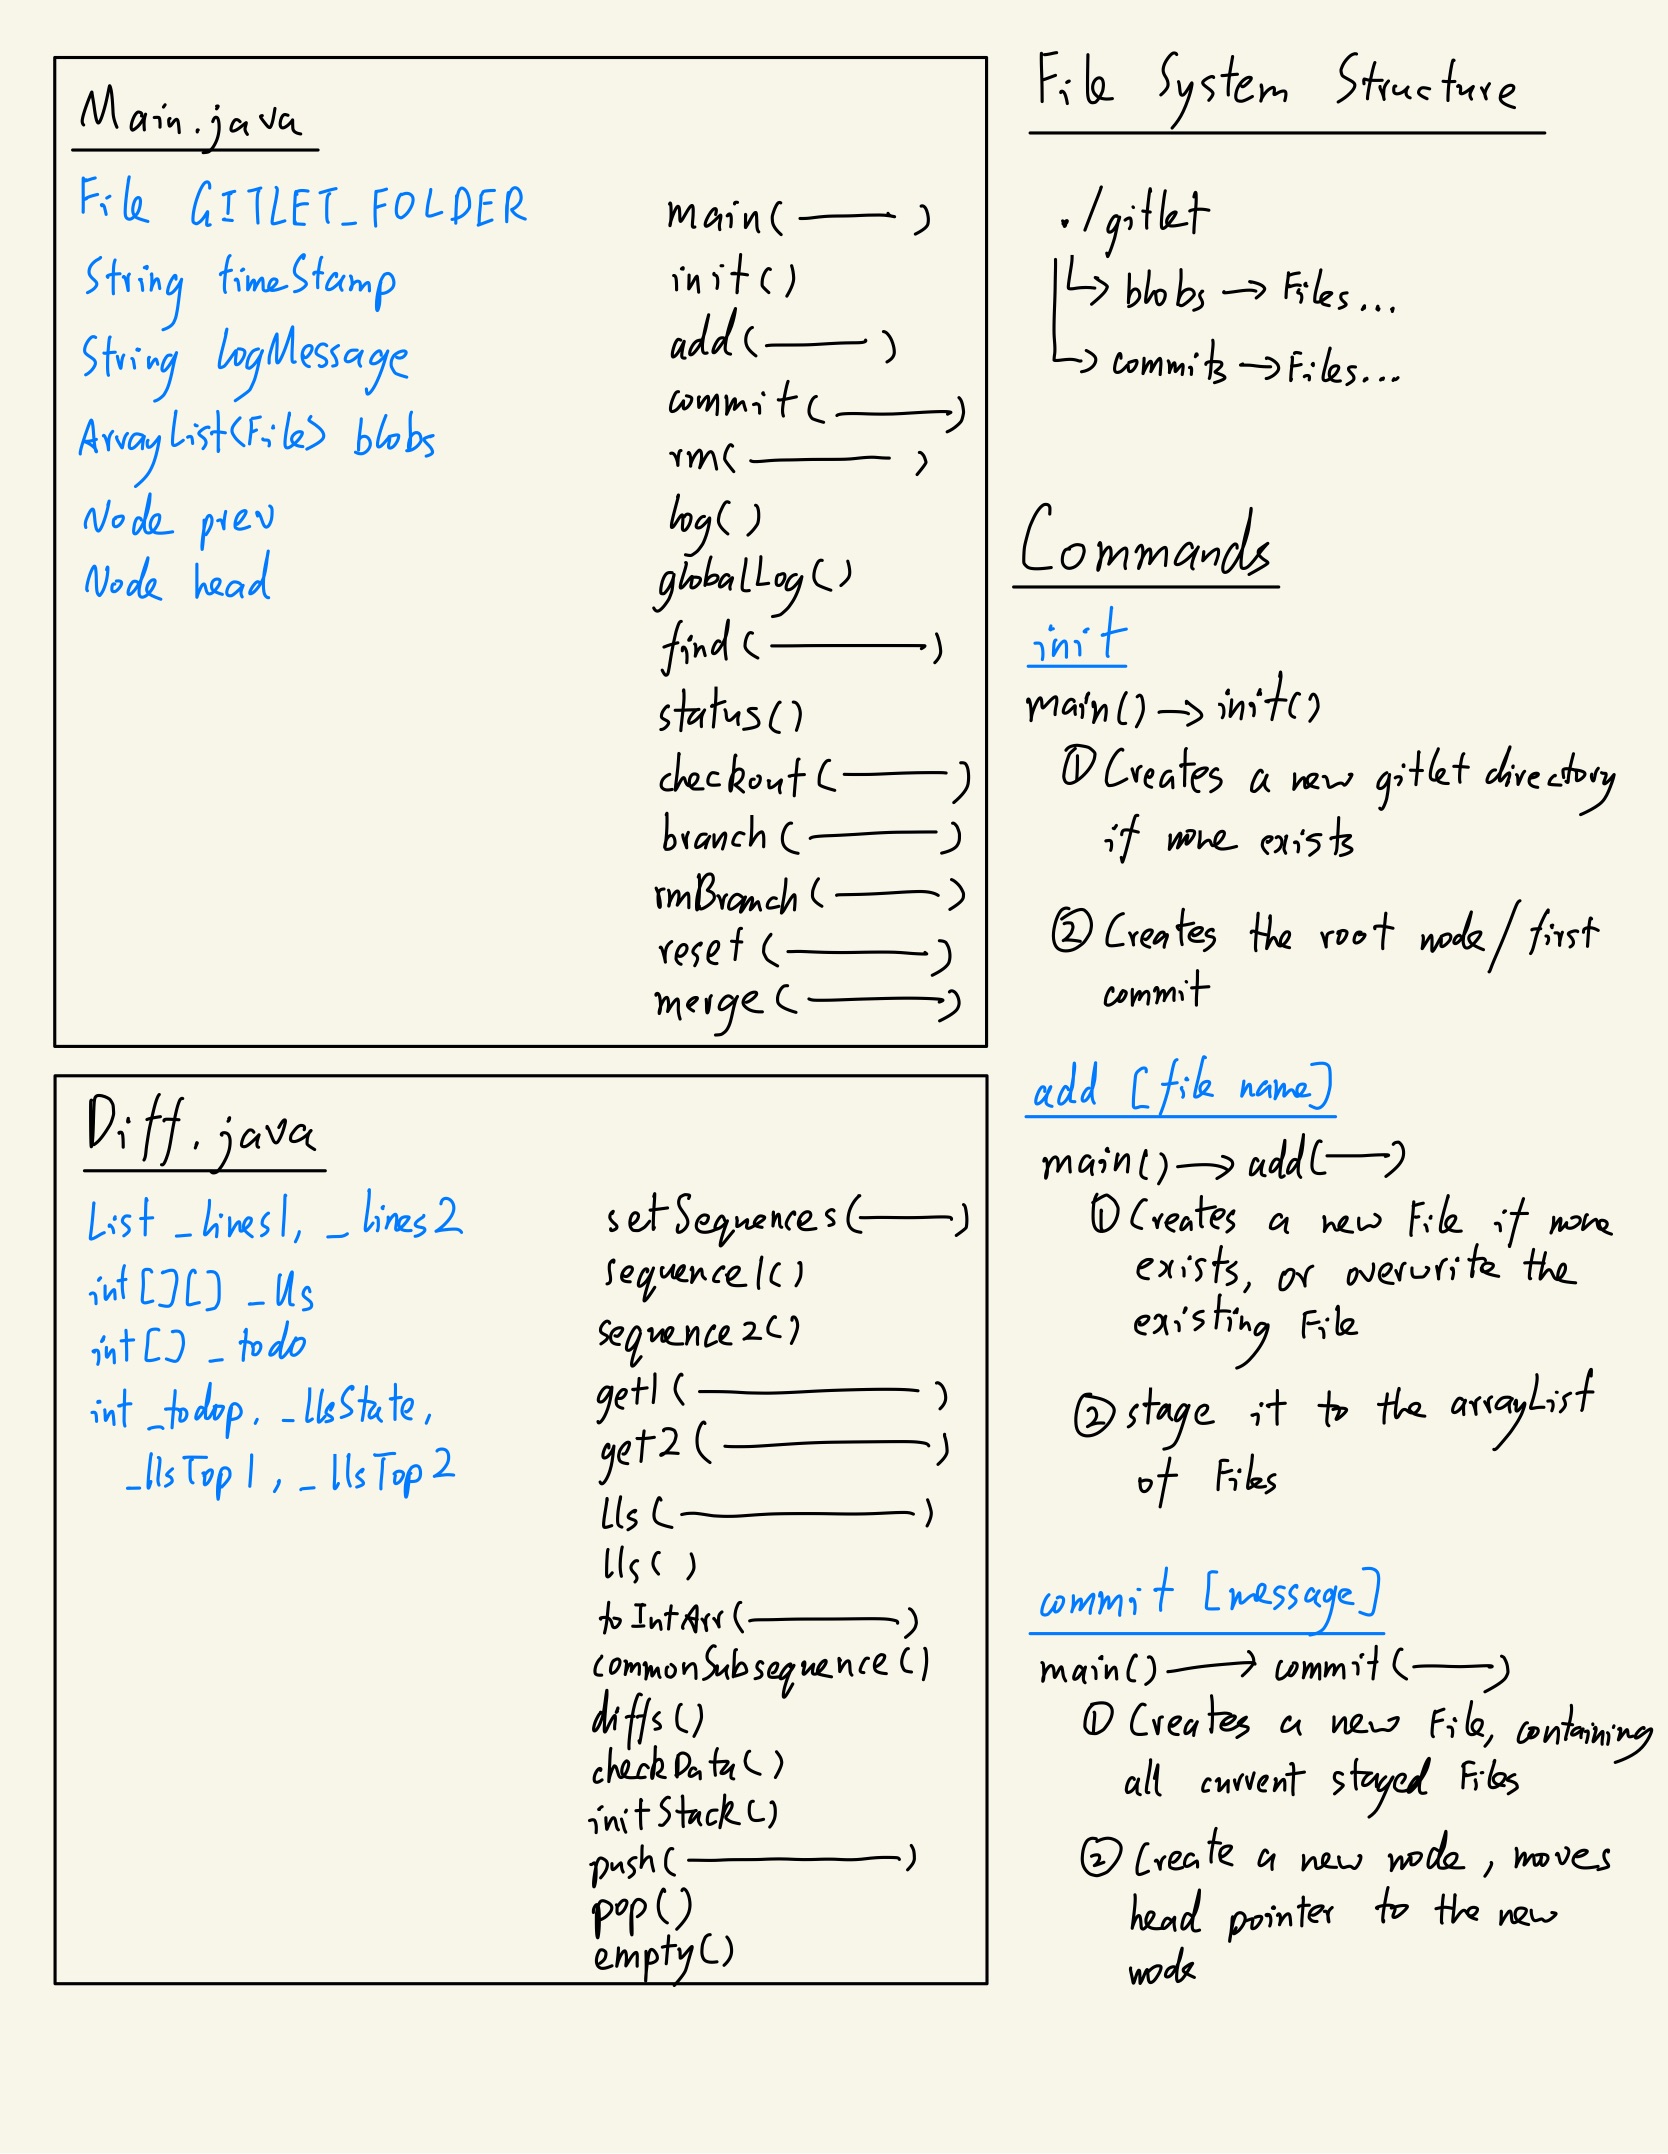 Main.java
File GITLET_FOLDER
String timeStamp
String logMessage
ArrayList<File> blobs
Node prev
Node head
main( —— )
init()
add( —— )
commit( —— )
rm( —— )
log()
globalLog()
find( —— )
status()
checkout( —— )
branch( —— )
rmBranch( —— )
reset( —— )
merge( —— )
Diff.java
List _lines1, _lines2
int[][] _lls
int[] _todo
int _todop, _llsState,
_llsTop1, _llsTop2
setSequences( —— )
sequence1()
sequence2()
get1( —— )
get2( —— )
lls( —— )
lls()
toIntArr( —— )
commonSubsequence()
diffs()
checkData()
initStack()
push( —— )
pop()
empty()
File System Structure
./gitlet
↳ blobs → Files...
↳ commits → Files...
Commands
init
main() → init()
① Creates a new gitlet directory
if none exists
② Creates the root node/first
commit
add [file name]
main() → add( —— )
① Creates a new File if none
exists, or overwrite the
existing File
② stage it to the arrayList
of Files
commit [message]
main() → commit( —— )
① Creates a new File, containing
all current staged Files
② Create a new node, moves
head pointer to the new
node